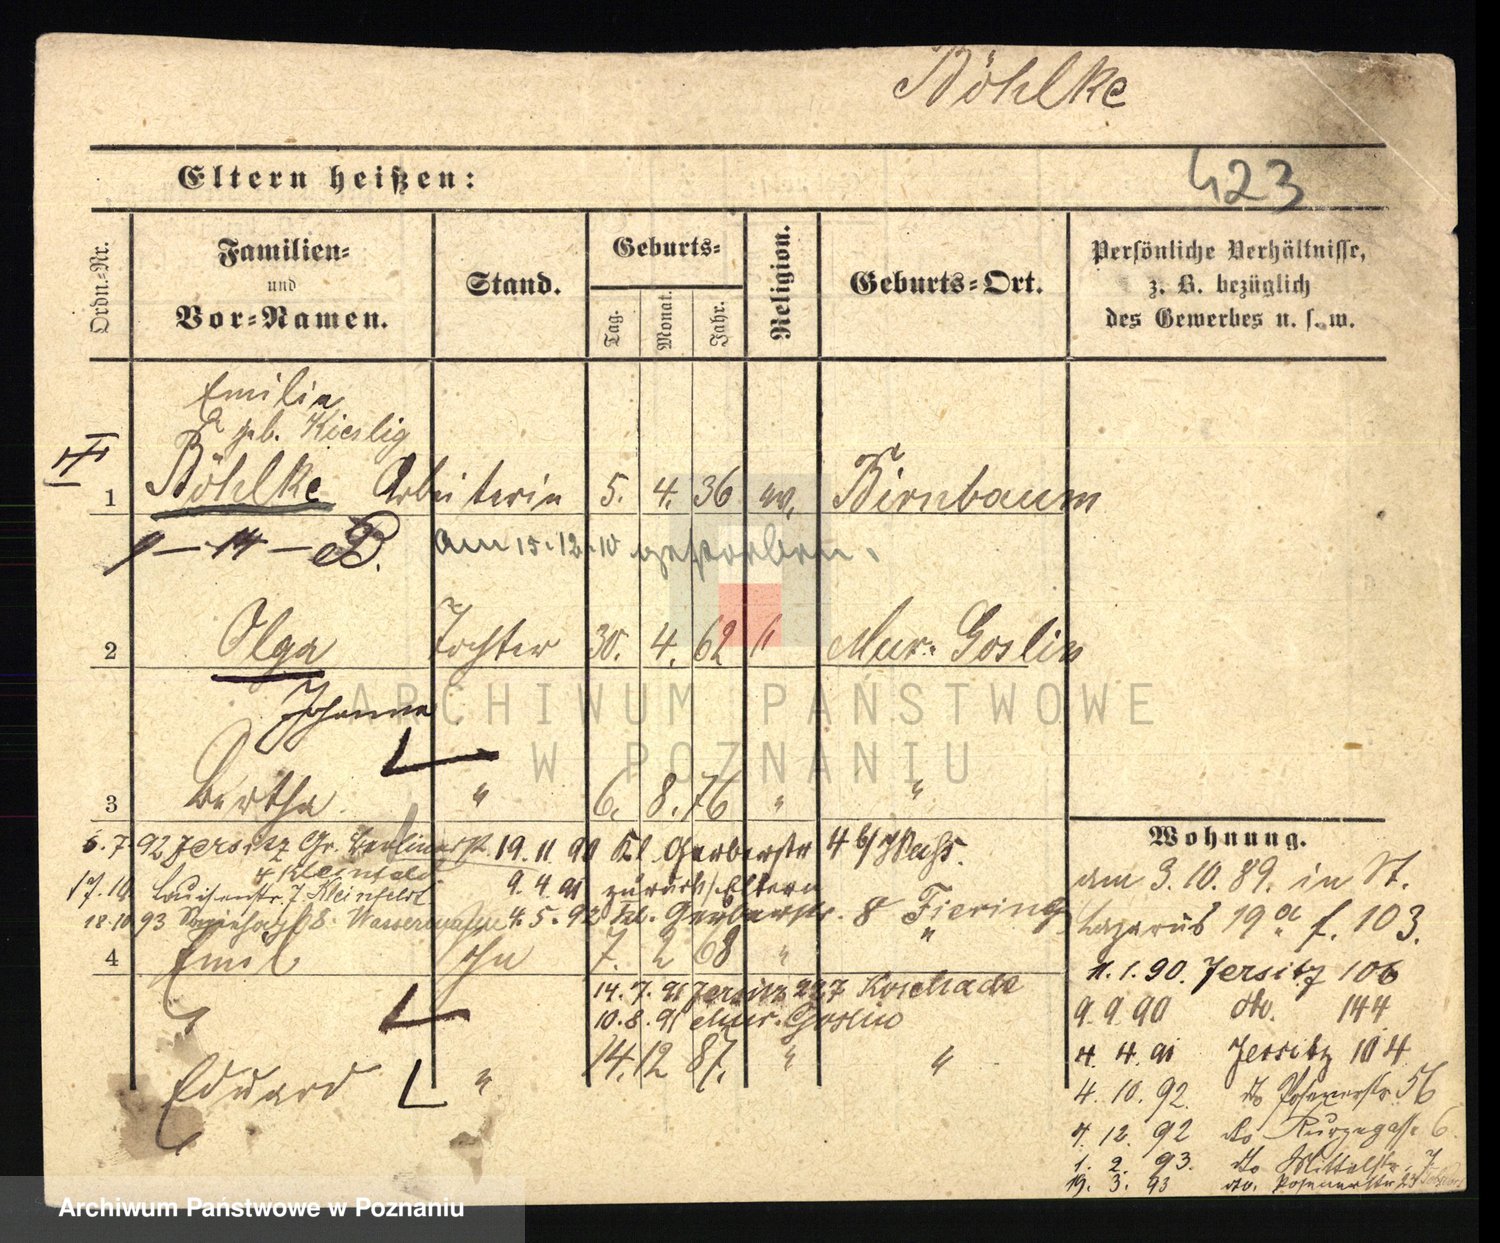 Böhlke
Eltern heißen:
423
Ordn.-Nr.
Familien-
und
Vor-Namen.
Stand.
Geburts-
Tag.
Monat.
Jahr.
Religion.
Geburts-Ort.
Persönliche Verhältnisse,
z. B. bezüglich
des Gewerbes u. s. w.
Emilie
geb. Kierlig
1 Böhlke Arbeiterin 5. 4. 36 ev. Birnbaum
B. am 15.12.10 gestorben.
2 Olga Tochter 30. 4. 62 " Mur. Goslin
Johanna
3 Bertha " 6. 8. 76 " "
6.7.92 Jersitz Gr. Berlinerstr. 19.11.90 Kl. Gerberstr 4 b/
Kleinfeld
17.10. Louisenstr. 7 Kleinfeldt 9.4.91 zurück / Eltern
18.10.93 8. Wassermann 4.5.92 Kl. Gerberstr. 8 Fiering
4 Emil 7. 2 68 " "
14.7.91 Jersitz 227 Koschade
10.8.91 Mur. Goslin
Eduard " 14. 12 87. " "
Wohnung.
am 3.10.89. in St.
Lazarus 19a f. 103.
11.1.90. Jersitz 106
9.9.90 do. 144
4.4.91 Jersitz 104
4.10.92. do Posenerstr. 56
4.12.92 do Kurzegasse 6
1.2.93. do Mittelstr. 7
19.3.93 do. Posenerstr 24
ARCHIWUM PAŃSTWOWE
W POZNANIU
Archiwum Państwowe w Poznaniu